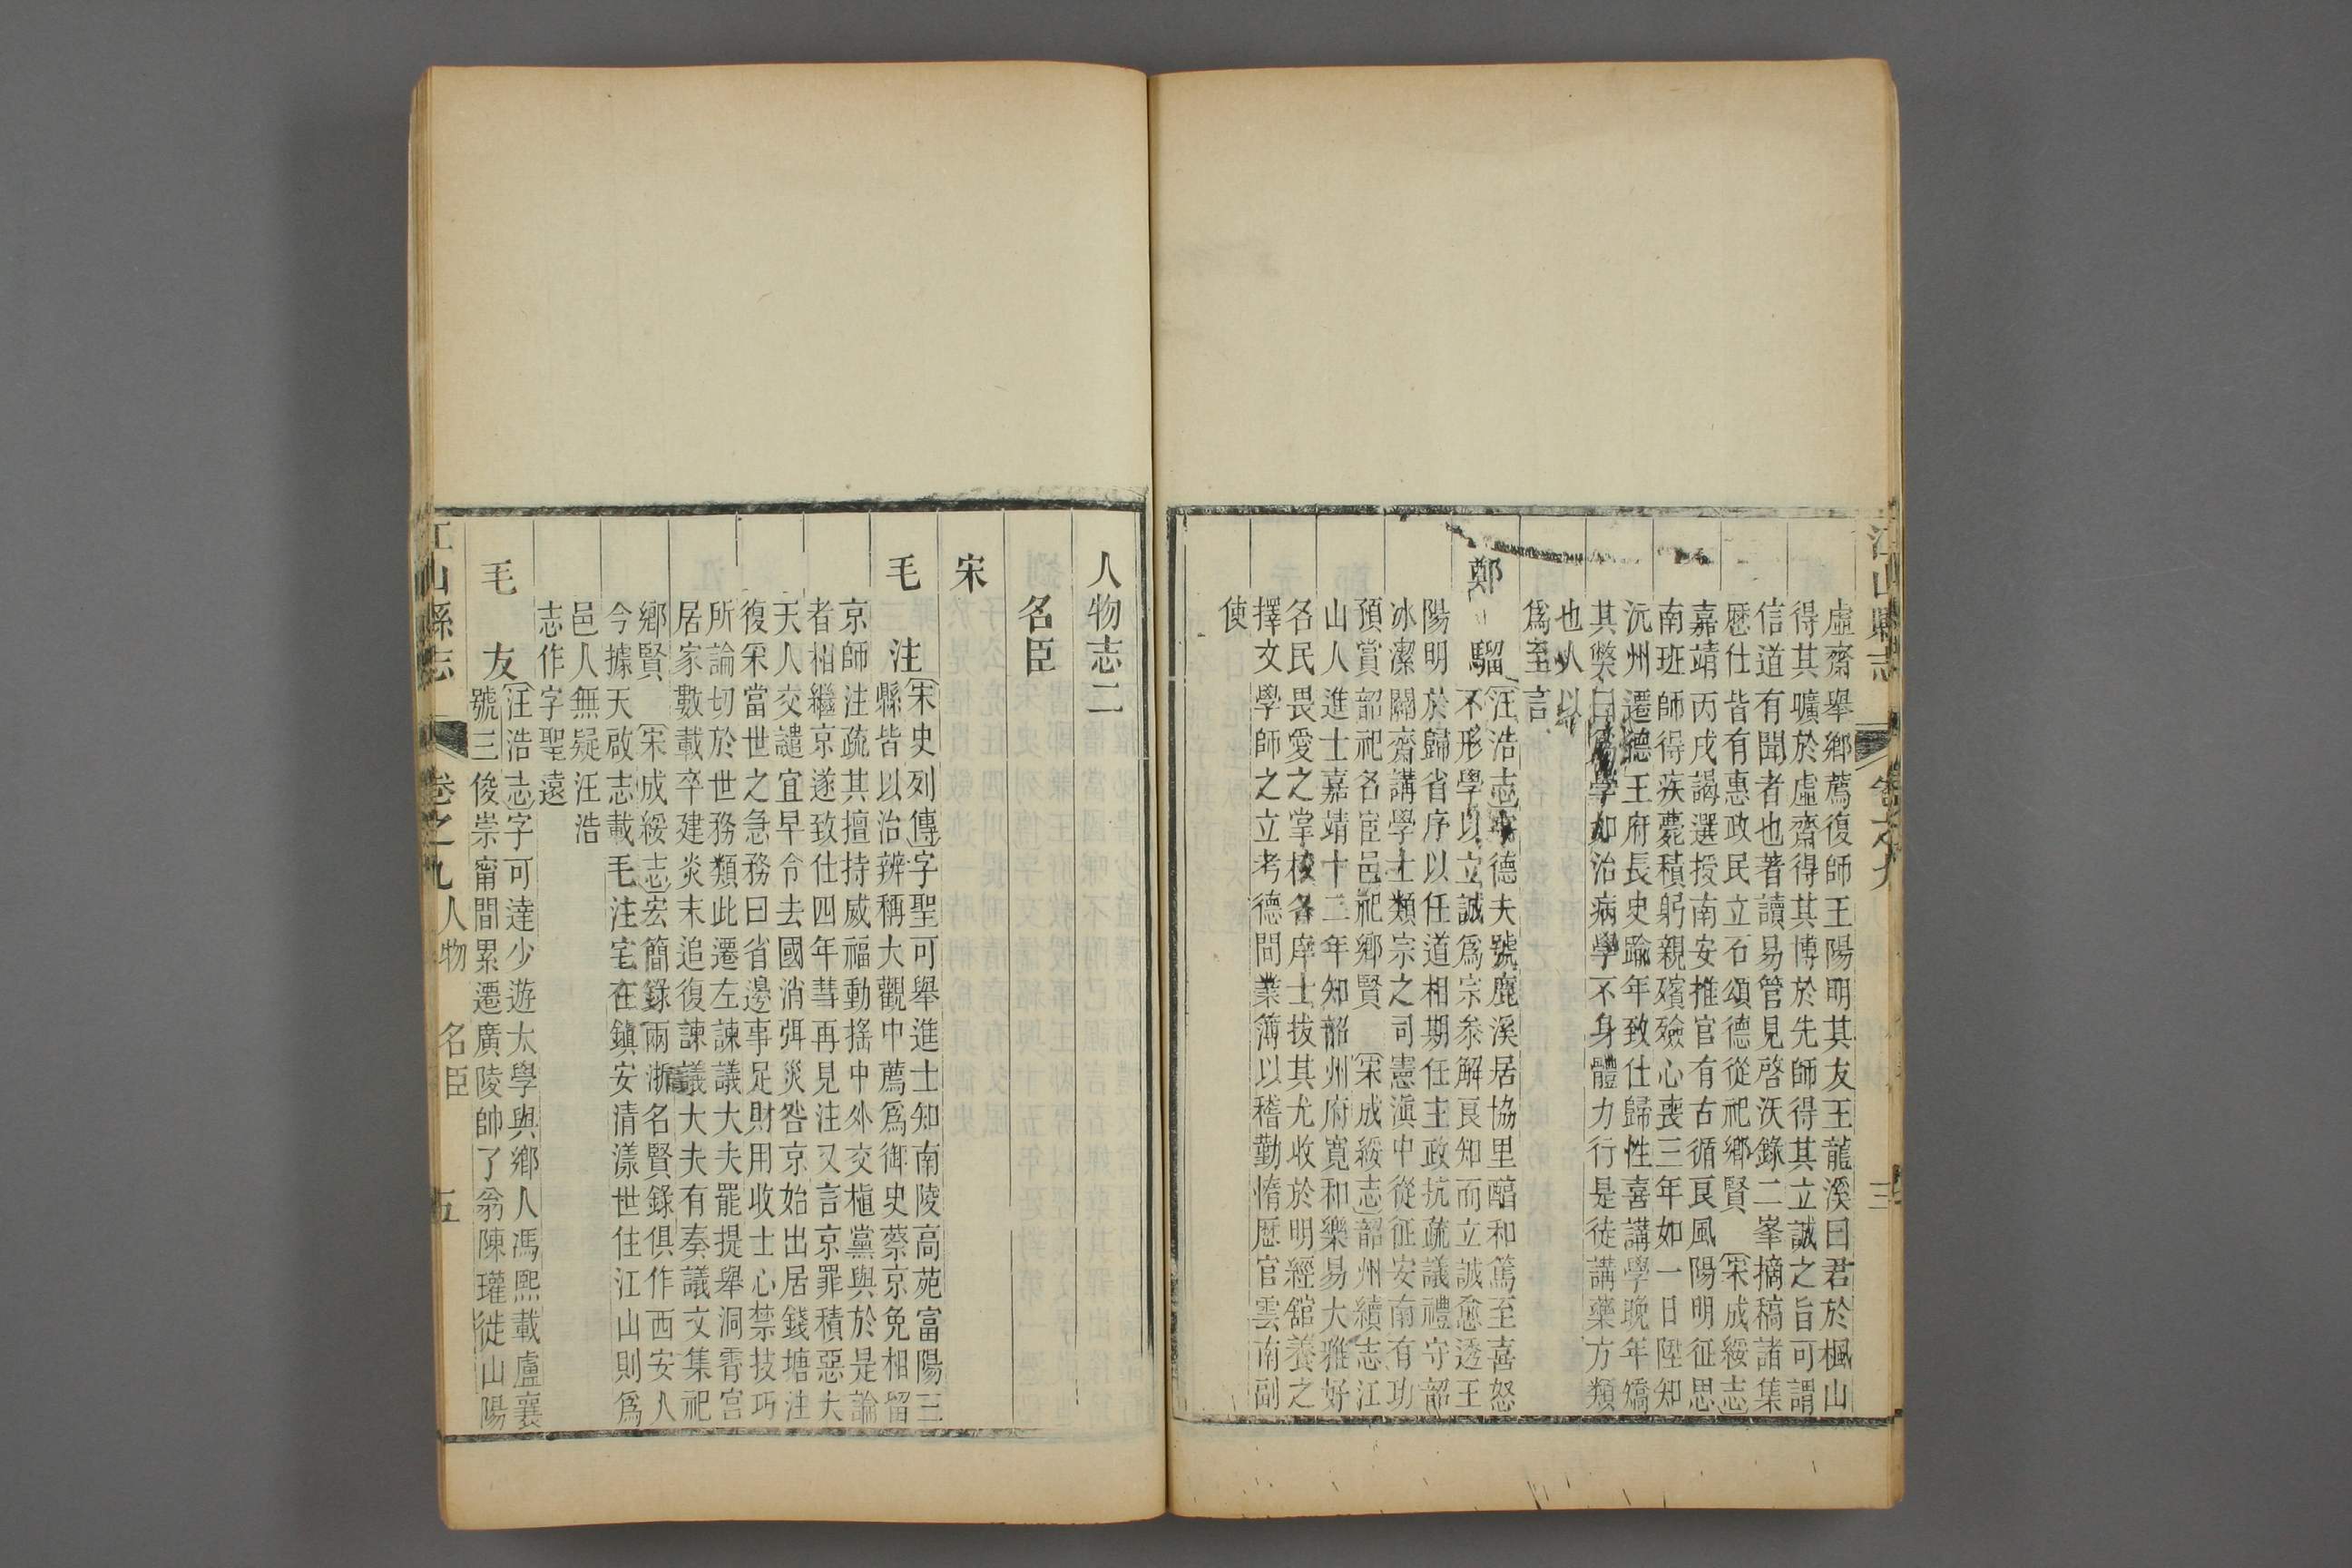 江山縣志
卷之九
三
虛齋舉鄉薦復師王陽明其友王龍溪曰君於楓山
得其曠於虛齋得其博於先師得其立誠之旨可謂
信道有聞者也著讀易管見啓沃錄二峯摘稿諸集
歷仕皆有惠政民立石頌德從祀鄉賢宋成綏志
嘉靖丙戌謁選授南安推官有古循良風陽明征思
南班師得疾薨積躬親殯殮心喪三年如一日陞知
沅州遷德王府長史踰年致仕歸性喜講學晚年矯
其獘曰爲學如治病學不身體力行是徒講藥方類
也人以
爲至言
鄭騮
汪浩志字德夫號鹿溪居協里醕和篤至喜怒
不形學以立誠爲宗叅解良知而立誠愈透王
陽明於歸省序以任道相期任主政抗疏議禮守韶
冰潔闢齋講學士類宗之司憲滇中從征安南有功
預賞韶祀名宦邑祀鄉賢宋成綏志韶州續志江
山人進士嘉靖十二年知韶州府寛和樂易大雅好
各民畏愛之掌校各庠士拔其尤收於明經舘養之
擇文學師之立考德問業簿以稽勤惰歷官雲南副
使
人物志二
名臣
宋
毛注
宋史列傳字聖可舉進士知南陵高苑富陽三
縣皆以治辨稱大觀中薦爲御史蔡京免相留
京師注疏其擅持威福動搖中外交植黨與於是論
者相繼京遂致仕四年彗再見注又言京罪積惡大
天人交譴宜早令去國消弭災咎京始出居錢塘注
復采當世之急務曰省邊事足財用收士心禁技巧
所論切於世務類此遷左諫議大夫罷提舉洞霄宮
居家數載卒建炎末追復諫議大夫有奏議文集祀
鄉賢宋成綏志宏簡錄兩浙名賢錄俱作西安人
今據天啟志載毛注宅在鎮安清漾世住江山則爲
邑人無疑汪浩
志作字聖遠
毛友
汪浩志字可達少遊太學與鄉人馮熙載盧襄
號三俊崇甯間累遷廣陵帥了翁陳瓘徙山陽
江山縣志
卷之九人物
名臣
五